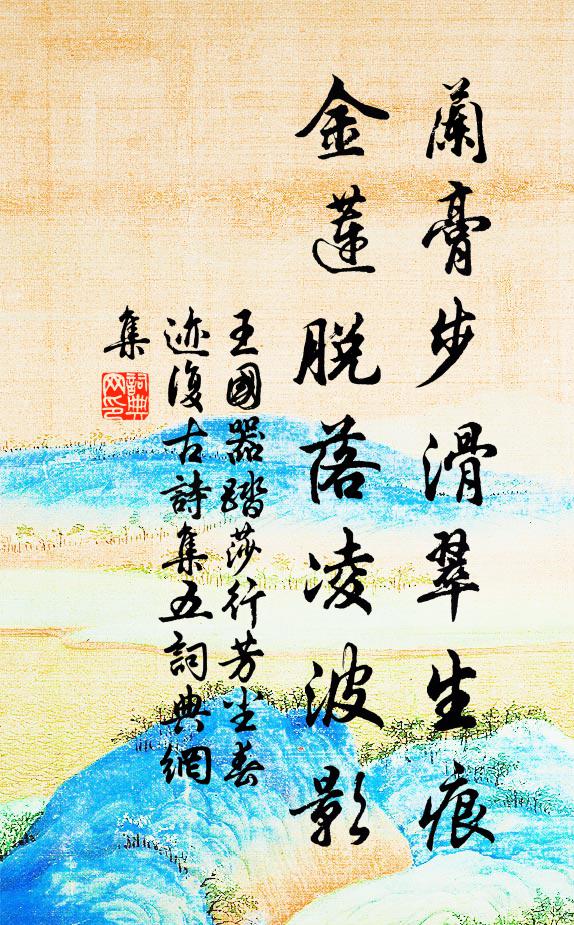 蘭膏步滑翠生痕
金蓮脫落凌波影
王國器踏莎行芳尘春
迹復古詩集五詞典網
集
詞典网印